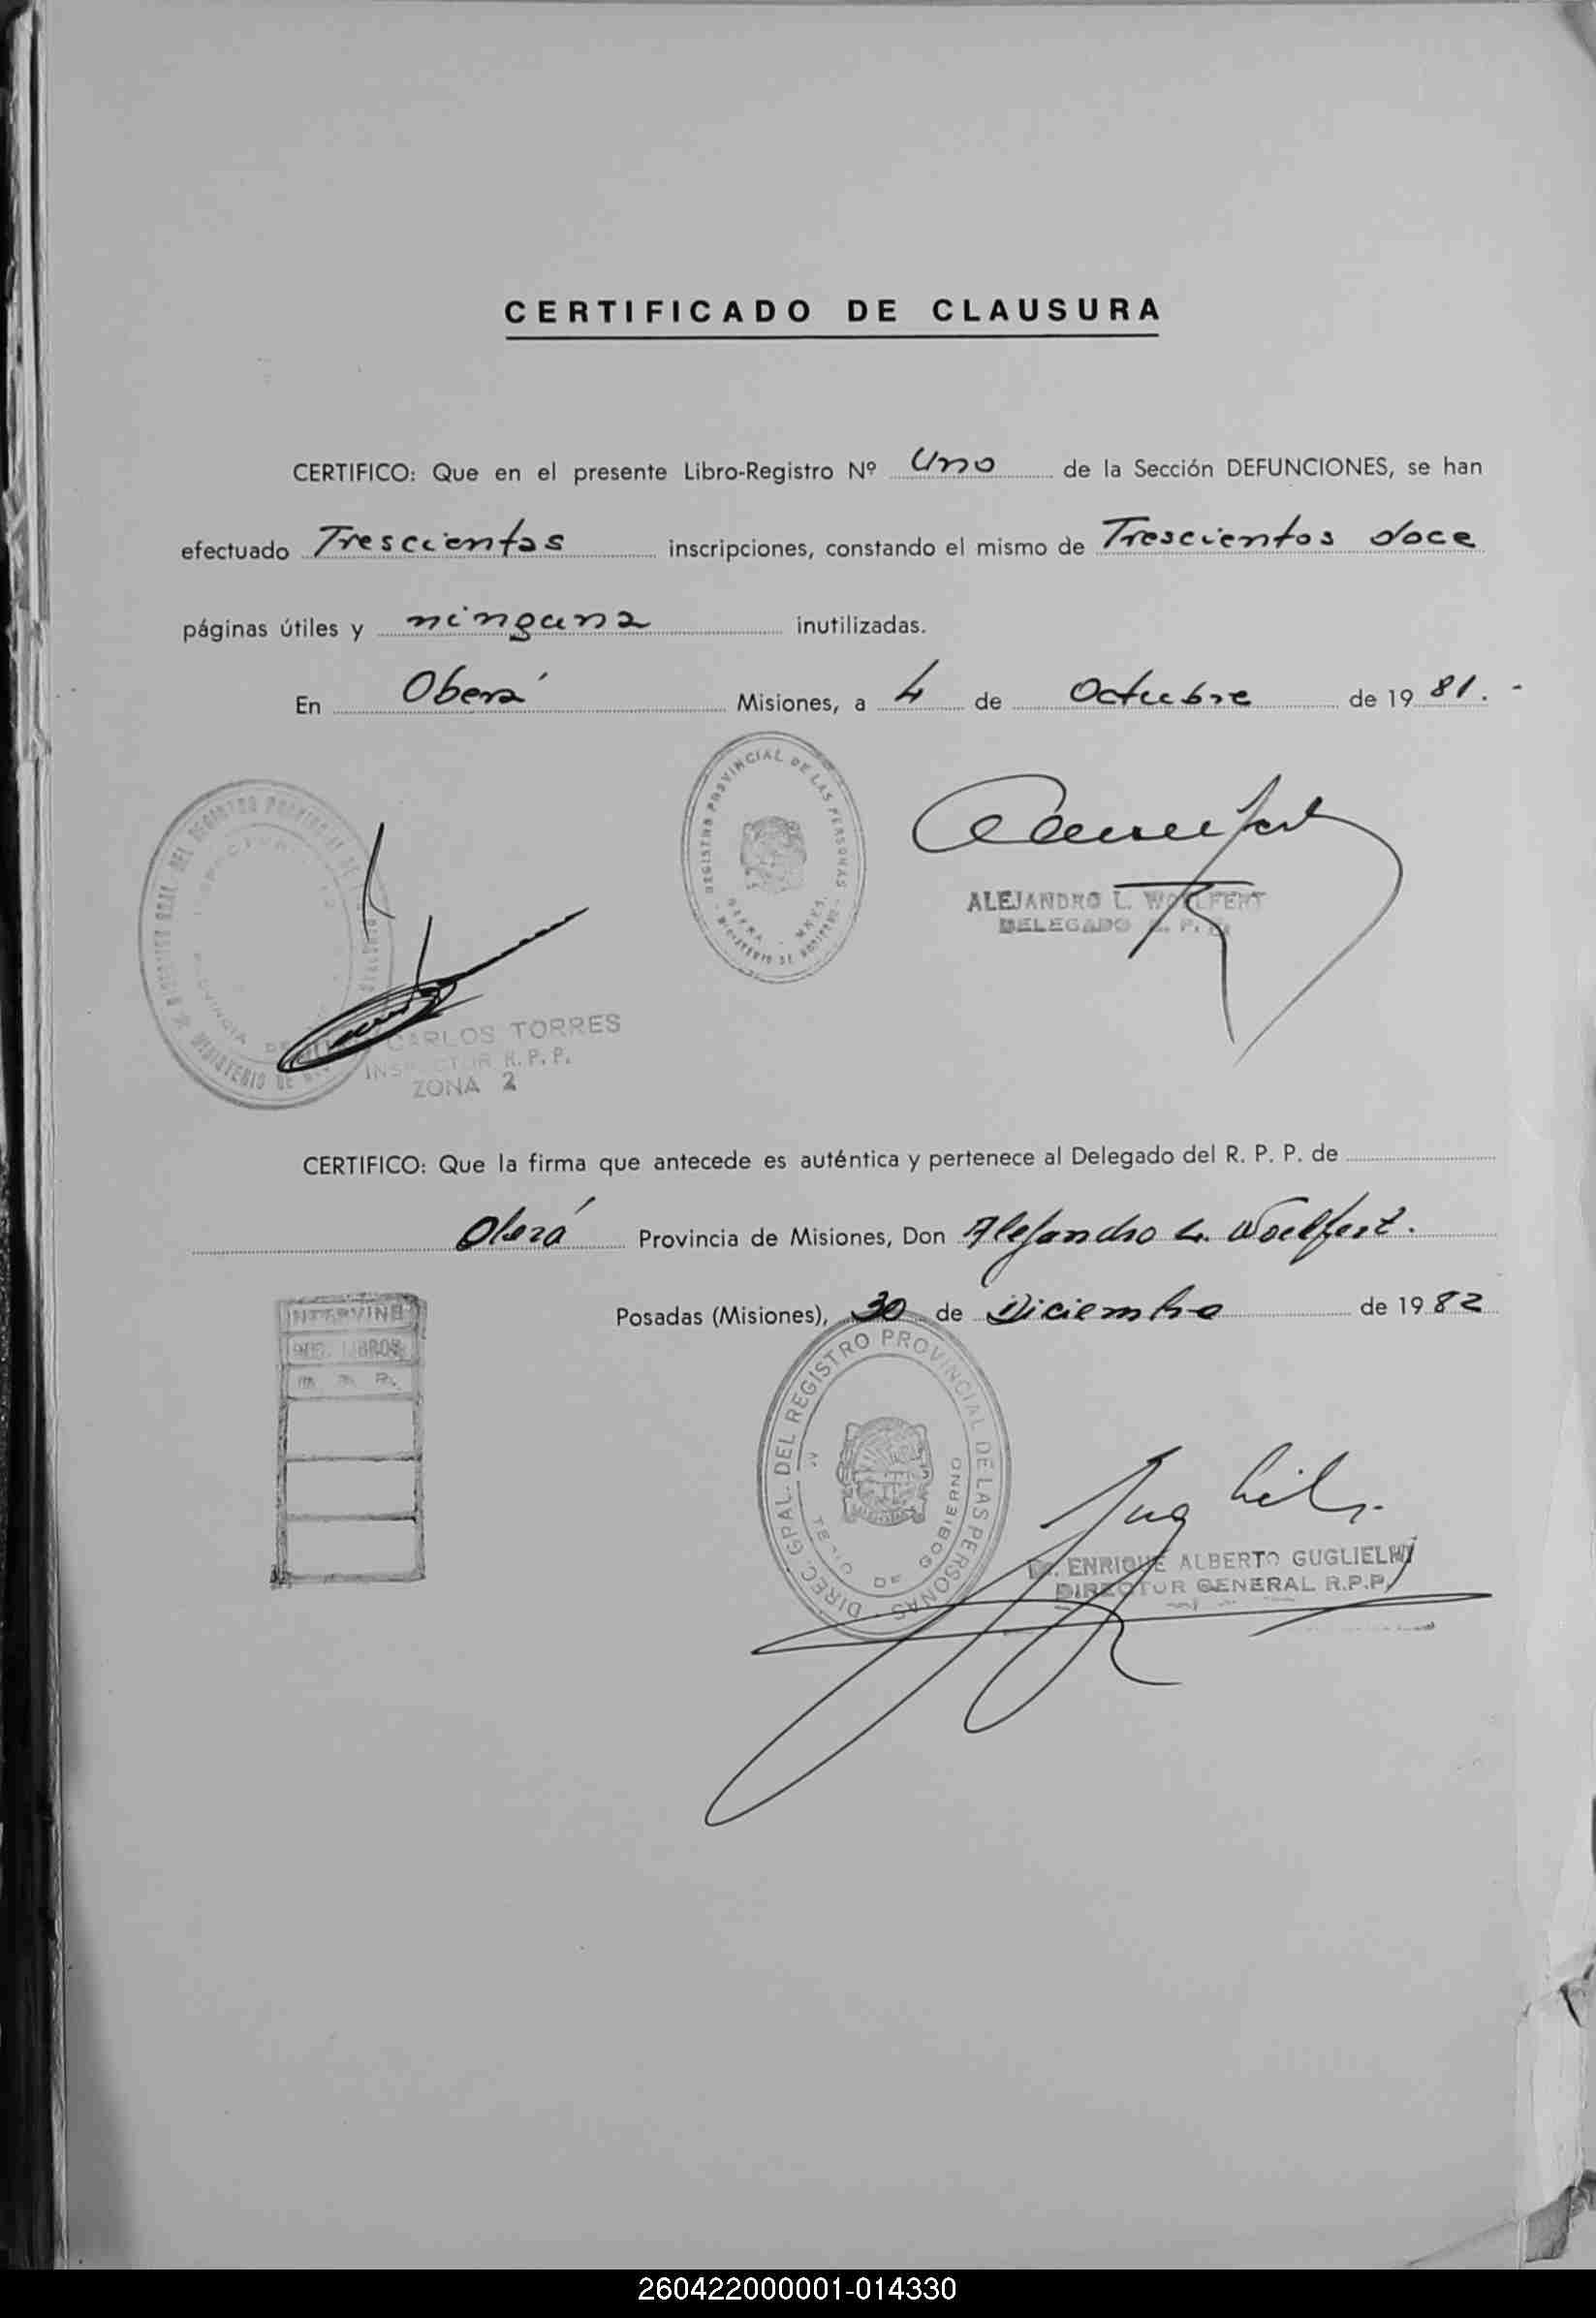 CERTIFICADO DE CLAUSURA
CERTIFICO: Que en el presente Libro-Registro Nº Uno de la Sección DEFUNCIONES, se han
efectuado Trescientas inscripciones, constando el mismo de Trescientos doce
páginas útiles y ninguna inutilizadas.
En Oberá Misiones, a 4 de Octubre de 1981.-
REGISTRO PROVINCIAL DE LAS PERSONAS
MINISTERIO DE GOBIERNO
ALEJANDRO L. WOELFERT
DELEGADO R. P. P.
CARLOS TORRES
INSPECTOR R. P. P.
ZONA 2
CERTIFICO: Que la firma que antecede es auténtica y pertenece al Delegado del R. P. P. de
Oberá Provincia de Misiones, Don Alejandro L. Woelfert.
Posadas (Misiones), 30 de Diciembre de 1982
INTERVINE
LIBROS
DIREC. GRAL. DEL REGISTRO PROVINCIAL DE LAS PERSONAS
MINISTERIO DE GOBIERNO
Dr. ENRIQUE ALBERTO GUGLIELMI
DIRECTOR GENERAL R.P.P.
260422000001-014330